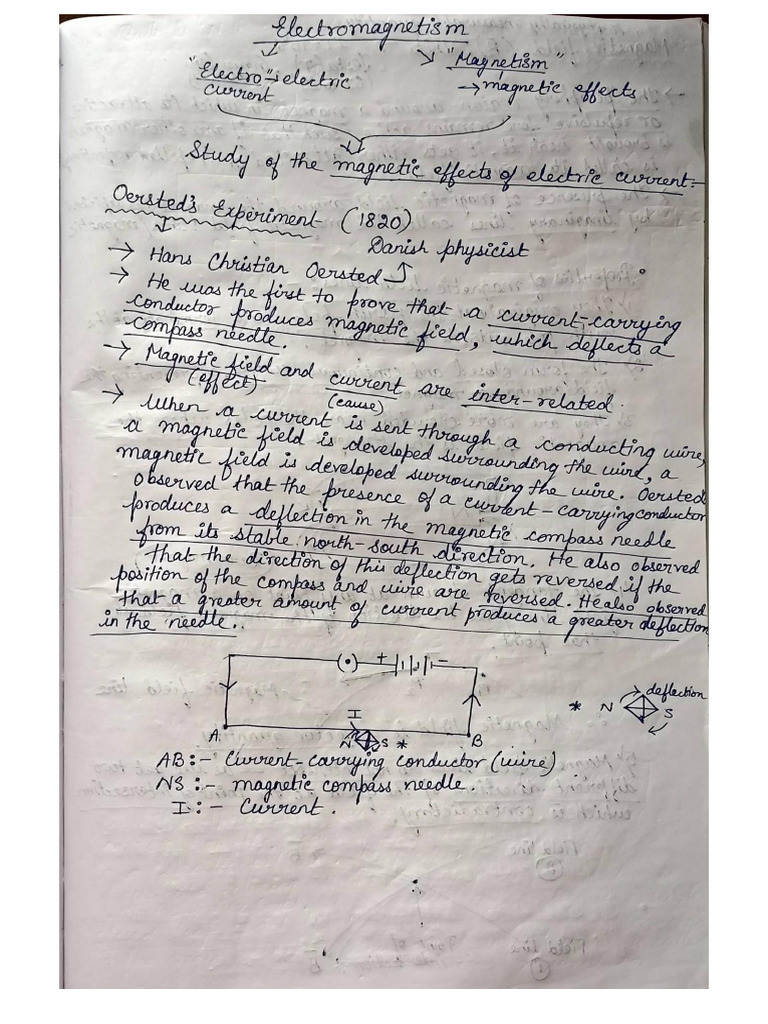 Electromagnetism
"Electro" → electric
current
"Magnetism"
→ magnetic effects
Study of the magnetic effects of electric current.
Oersted's Experiment (1820)
→ Hans Christian Oersted
Danish physicist
→ He was the first to prove that a current-carrying
conductor produces magnetic field, which deflects a
compass needle.
→ Magnetic field and current are inter-related.
(effect) (cause)
→ When a current is sent through a conducting wire,
a magnetic field is developed surrounding the wire, a
magnetic field is developed surrounding the wire. Oersted
observed that the presence of a current-carrying conductor
produces a deflection in the magnetic compass needle
from its stable north-south direction. He also observed
that the direction of this deflection gets reversed if the
position of the compass and wire are reversed. He also observed
that a greater amount of current produces a greater deflection
in the needle.
(•) + −
deflection
* N S
I
A N S * B
AB :- Current-carrying conductor (wire)
NS :- magnetic compass needle.
I :- Current.